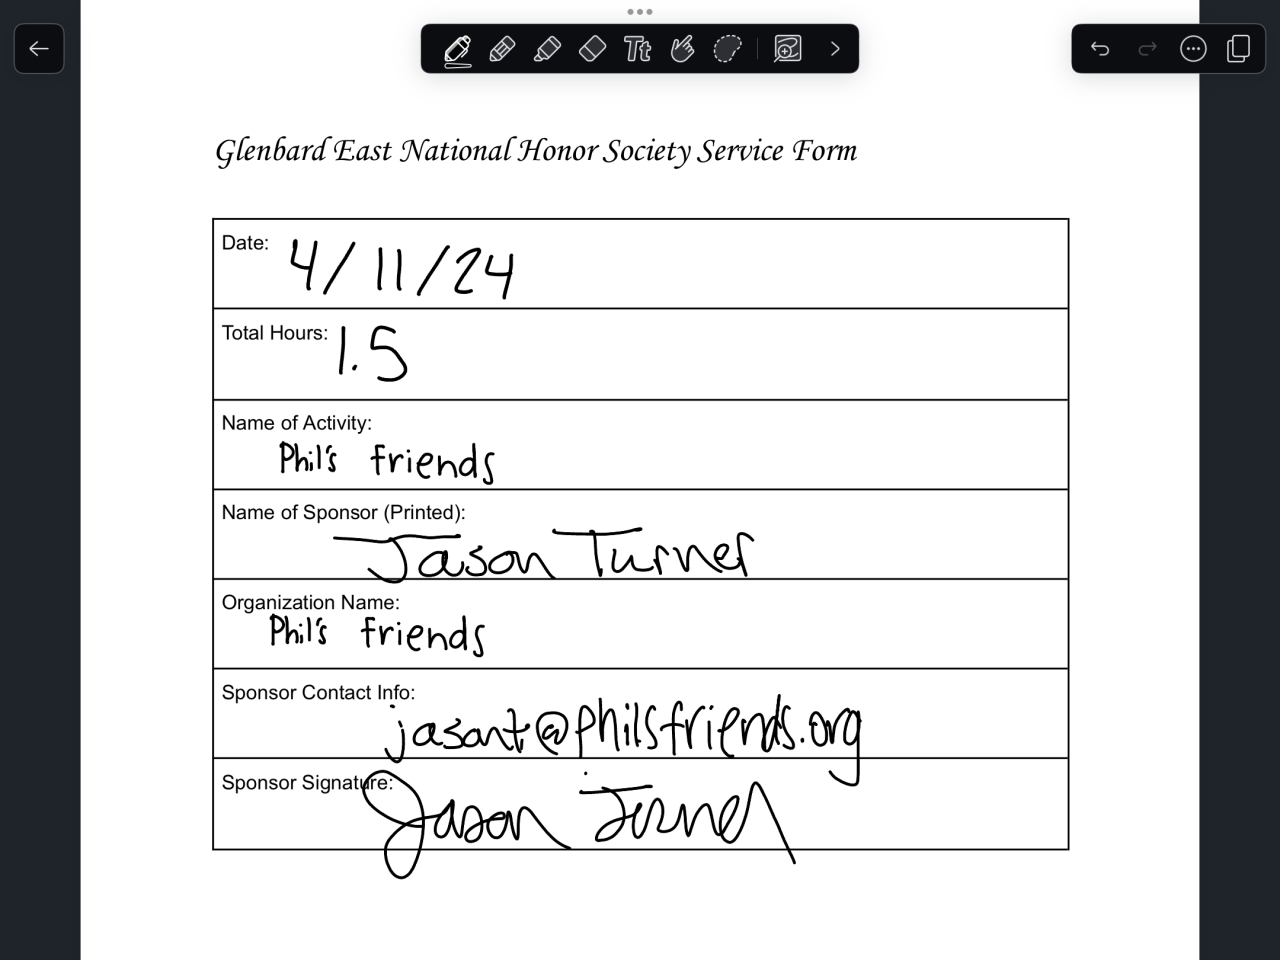 Tt
Glenbard East National Honor Society Service Form
Date: 4/11/24
Total Hours: 1.5
Name of Activity:
Phil's friends
Name of Sponsor (Printed):
Jason Turner
Organization Name:
Phil's friends
Sponsor Contact Info:
jasont@philsfriends.org
Sponsor Signature: Jason Turner